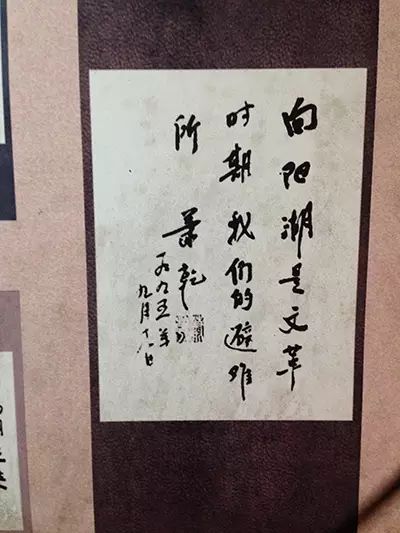 向阳湖是文革
时期我们的避难
所 萧乾
一九九五年
九月十八日